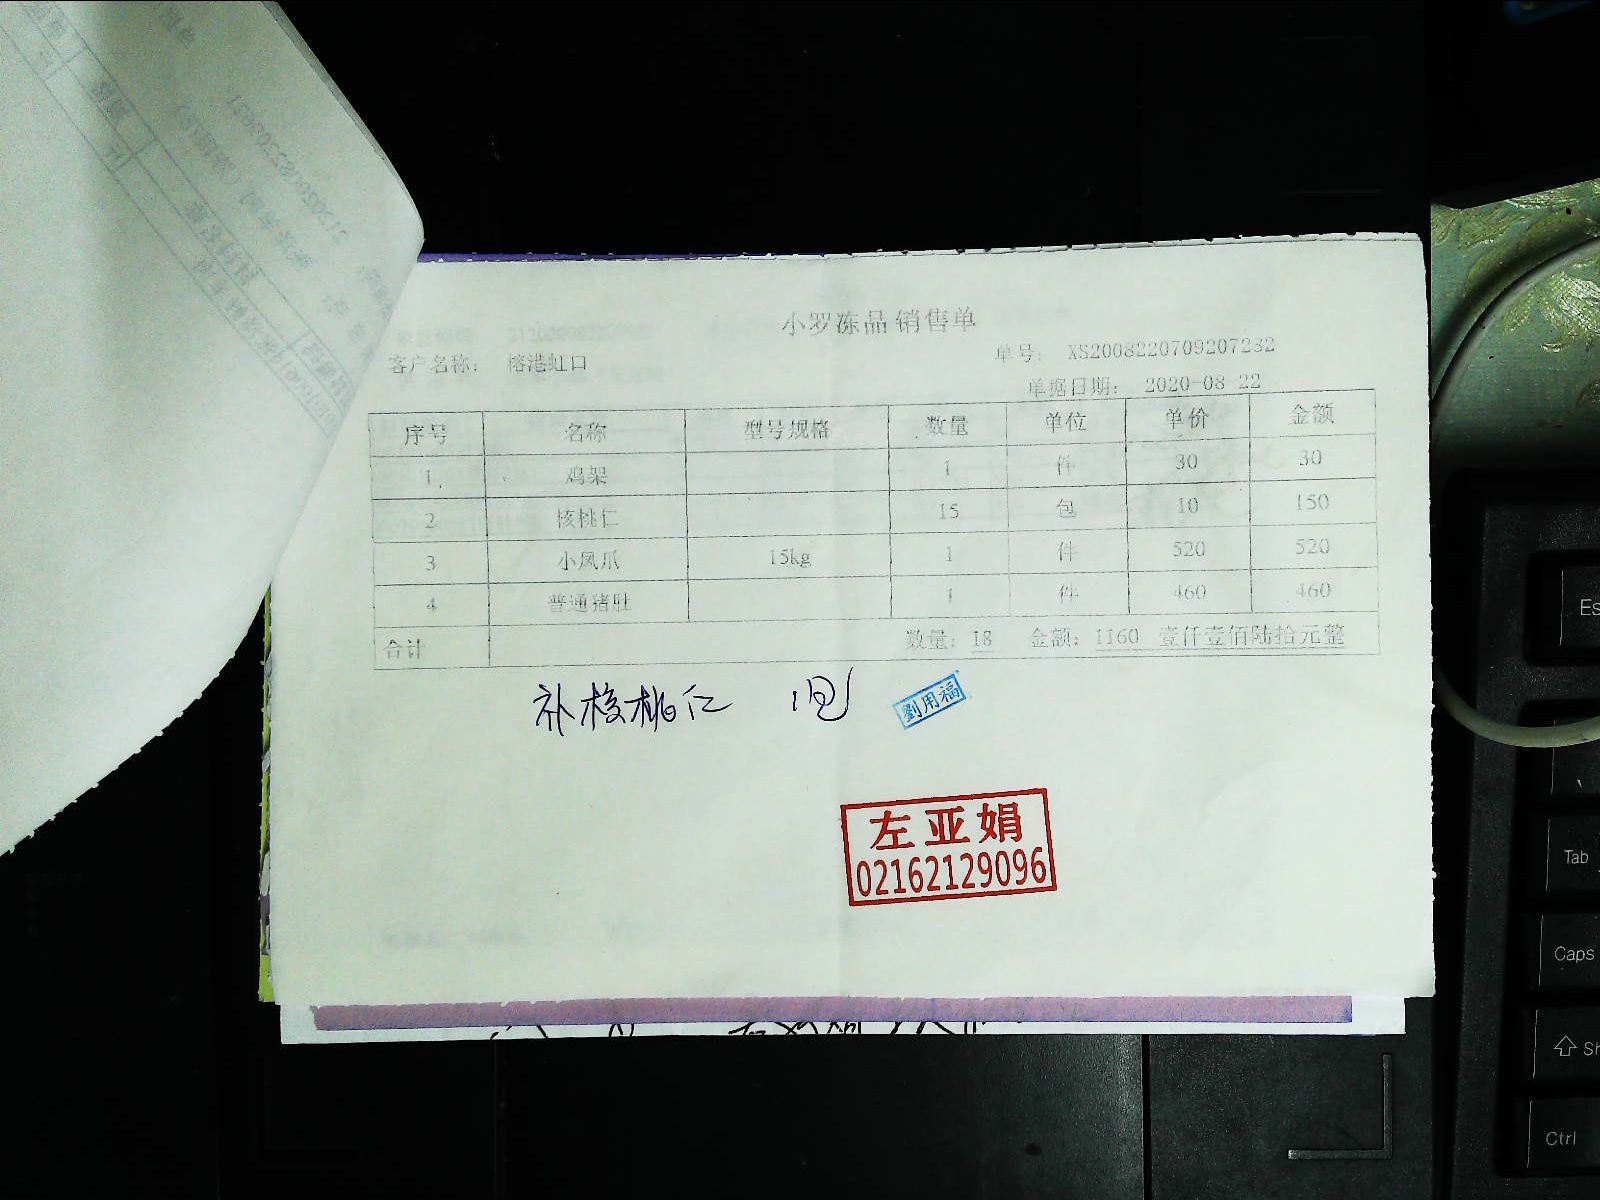 小罗冻品销售单
客户名称: 榕港虹口
单号: XS2008220709207232
单据日期: 2020-08-22
序号 名称 型号规格 数量 单位 单价 金额
1 鸡架 1 件 30 30
2 核桃仁 15 包 10 150
3 小凤爪 15kg 1 件 520 520
4 普通猪肚 1 件 460 460
合计 数量: 18 金额: 1160 壹仟壹佰陆拾元整
补核桃仁 1包
劉用福
左亚娟
02162129096
Es
Tab
Caps
Sh
Ctrl